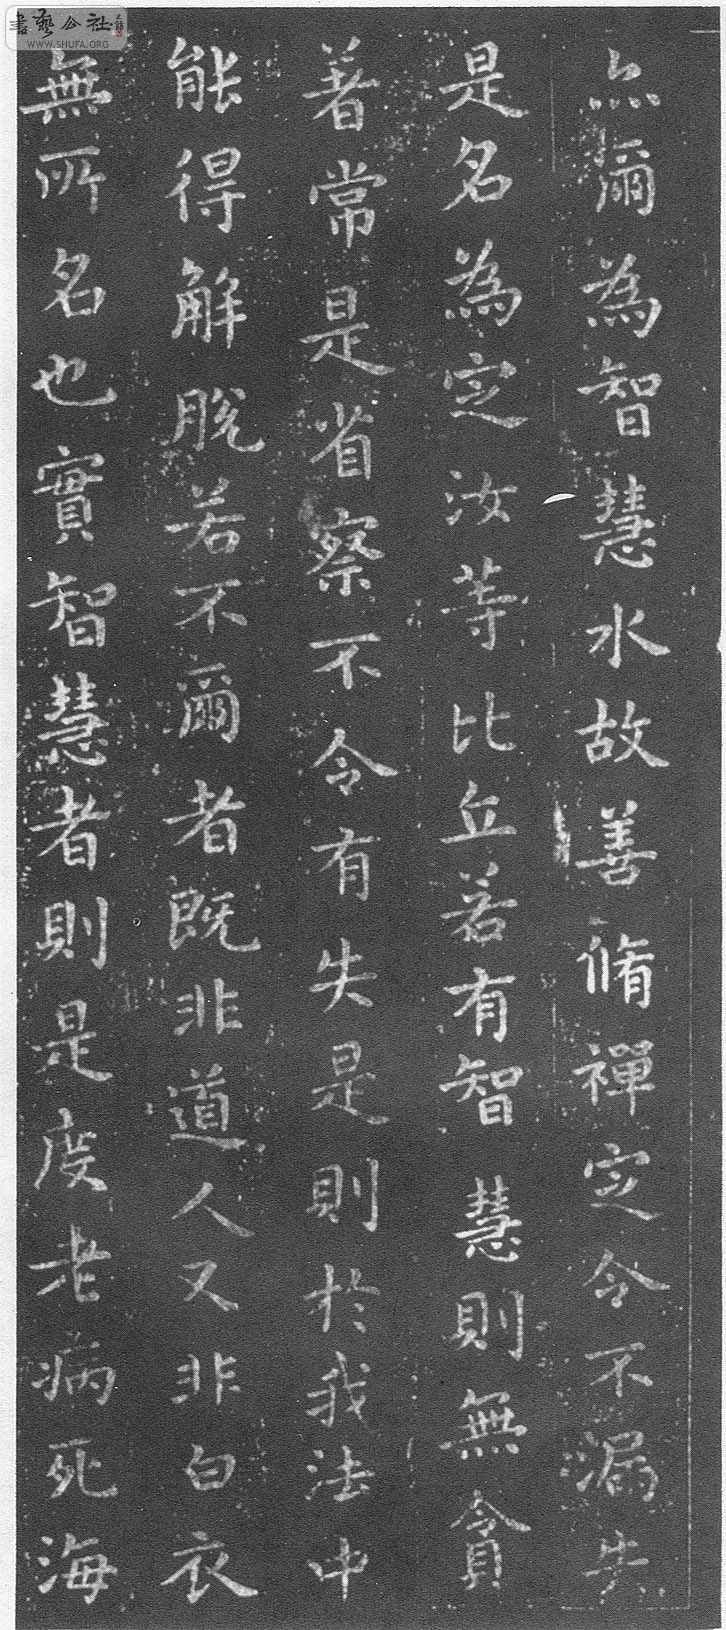 亦爾為智慧水故善脩禪定令不漏失
是名為定汝等比丘若有智慧則無貪
著常是省察不令有失是則於我法中
能得解脫若不爾者既非道人又非白衣
無所名也實智慧者則是度老病死海
書藝公社
WWW.SHUFA.ORG